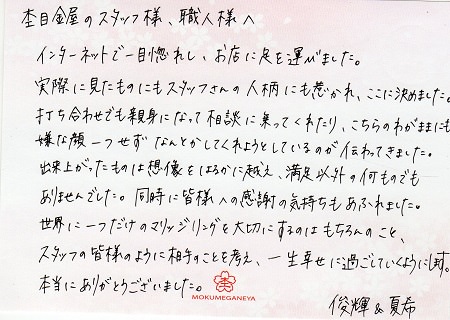 杢目金屋のスタッフ様、職人様へ
インターネットで一目惚れし、お店に足を運びました。
実際に見たものにもスタッフさんの人柄にも惹かれ、ここに決めました。
打ち合わせでも親身になって相談に乗ってくれたり、こちらのわがままにも
嫌な顔一つせずなんとかしてくれようとしているのが伝わってきました。
出来上がったものは想像をはるかに越え、満足以外の何ものでも
ありませんでした。同時に皆様への感謝の気持ちもあふれました。
世界に一つだけのマリッジリングを大切にするのはもちろんのこと、
スタッフの皆様のように相手のことを考え、一生幸せに過ごしていくようにします。
本当にありがとうございました。
MOKUMEGANEYA
俊輝 & 夏希